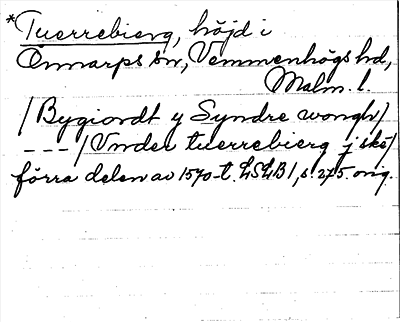 *Tuerrebierg, höjd i
Önnarps sn, Vemmenhögs hd,
Malm. l.
/Bygiordt y Syndre wongh/
---/Vnder tuerrebierg j skè/
förra delen av 1570-t. LSLB1, s. 275. orig.